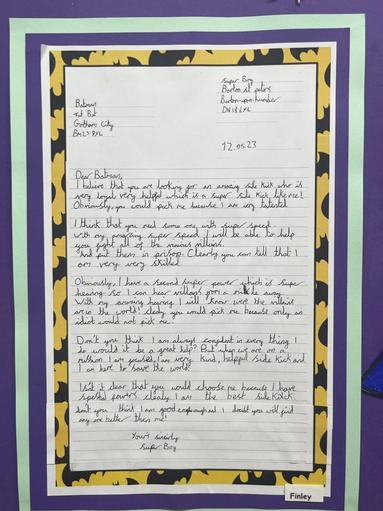 Super Boy
Barton st peters
Barton-upon-humber
DN18 6XL
Batman
Bat
Gotham City
12.05.23
Dear Batman,
I believe that you are looking for an amazing side kick who is
very loyal very helpful which is a super side kick like me!
Obviously, you could pick me because I am very talented.
I think that you need some one with super speed
with my amazing super speed I will be able to help
you fight all of the villians.
And put them in prison. Clearly you can tell that I
am very very skilled.
Obviously, I have a second super power which is super
hearing so I can hear villans from a mile away.
With my amazing hearing I will know were the villains
are in the world! clealy you would pick me because only an
idiot would not pick me!
Don't you think I am always confident in every thing I
do would it be a great help? But when we are on a
mission I am very kind, helpful side kick and
I am here to save the world!
Isn't it clear that you would choose me because I have
powers clealy I am the best side kick.
don't you think I am good enough I doubt you will find
any one better then me!
Yours
Super Boy
Finley